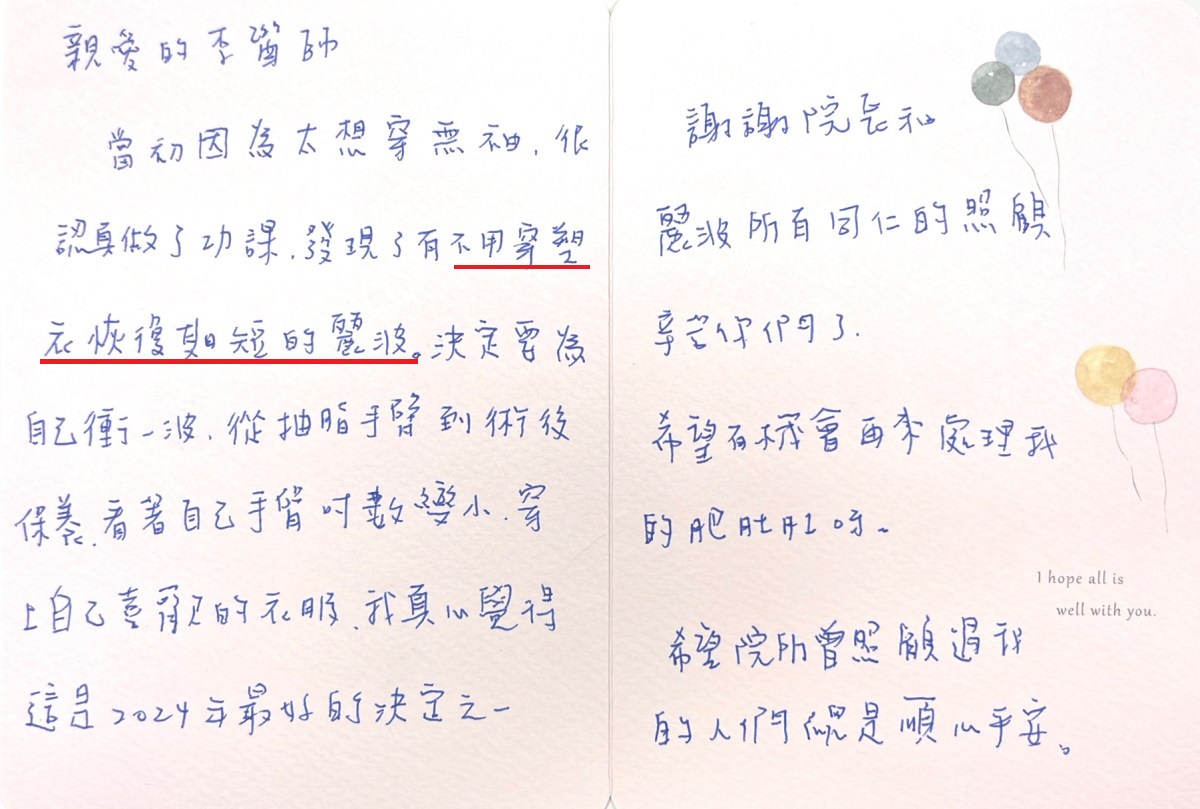 親愛的李醫師
當初因為太想穿無袖，很
認真做了功課，發現了有不用穿塑
衣恢復期短的麗波。決定要為
自己衝一波，從抽脂手臂到術後
保養，看著自己手臂吋數變小，穿
上自己喜歡的衣服，我真心覺得
這是2024年最好的決定之一
謝謝院長和
麗波所有同仁的照顧
辛苦你們了.
希望有機會再來處理我
的肥肚肚呀~
I hope all is
well with you.
希望院所曾照顧過我
的人們都是順心平安。